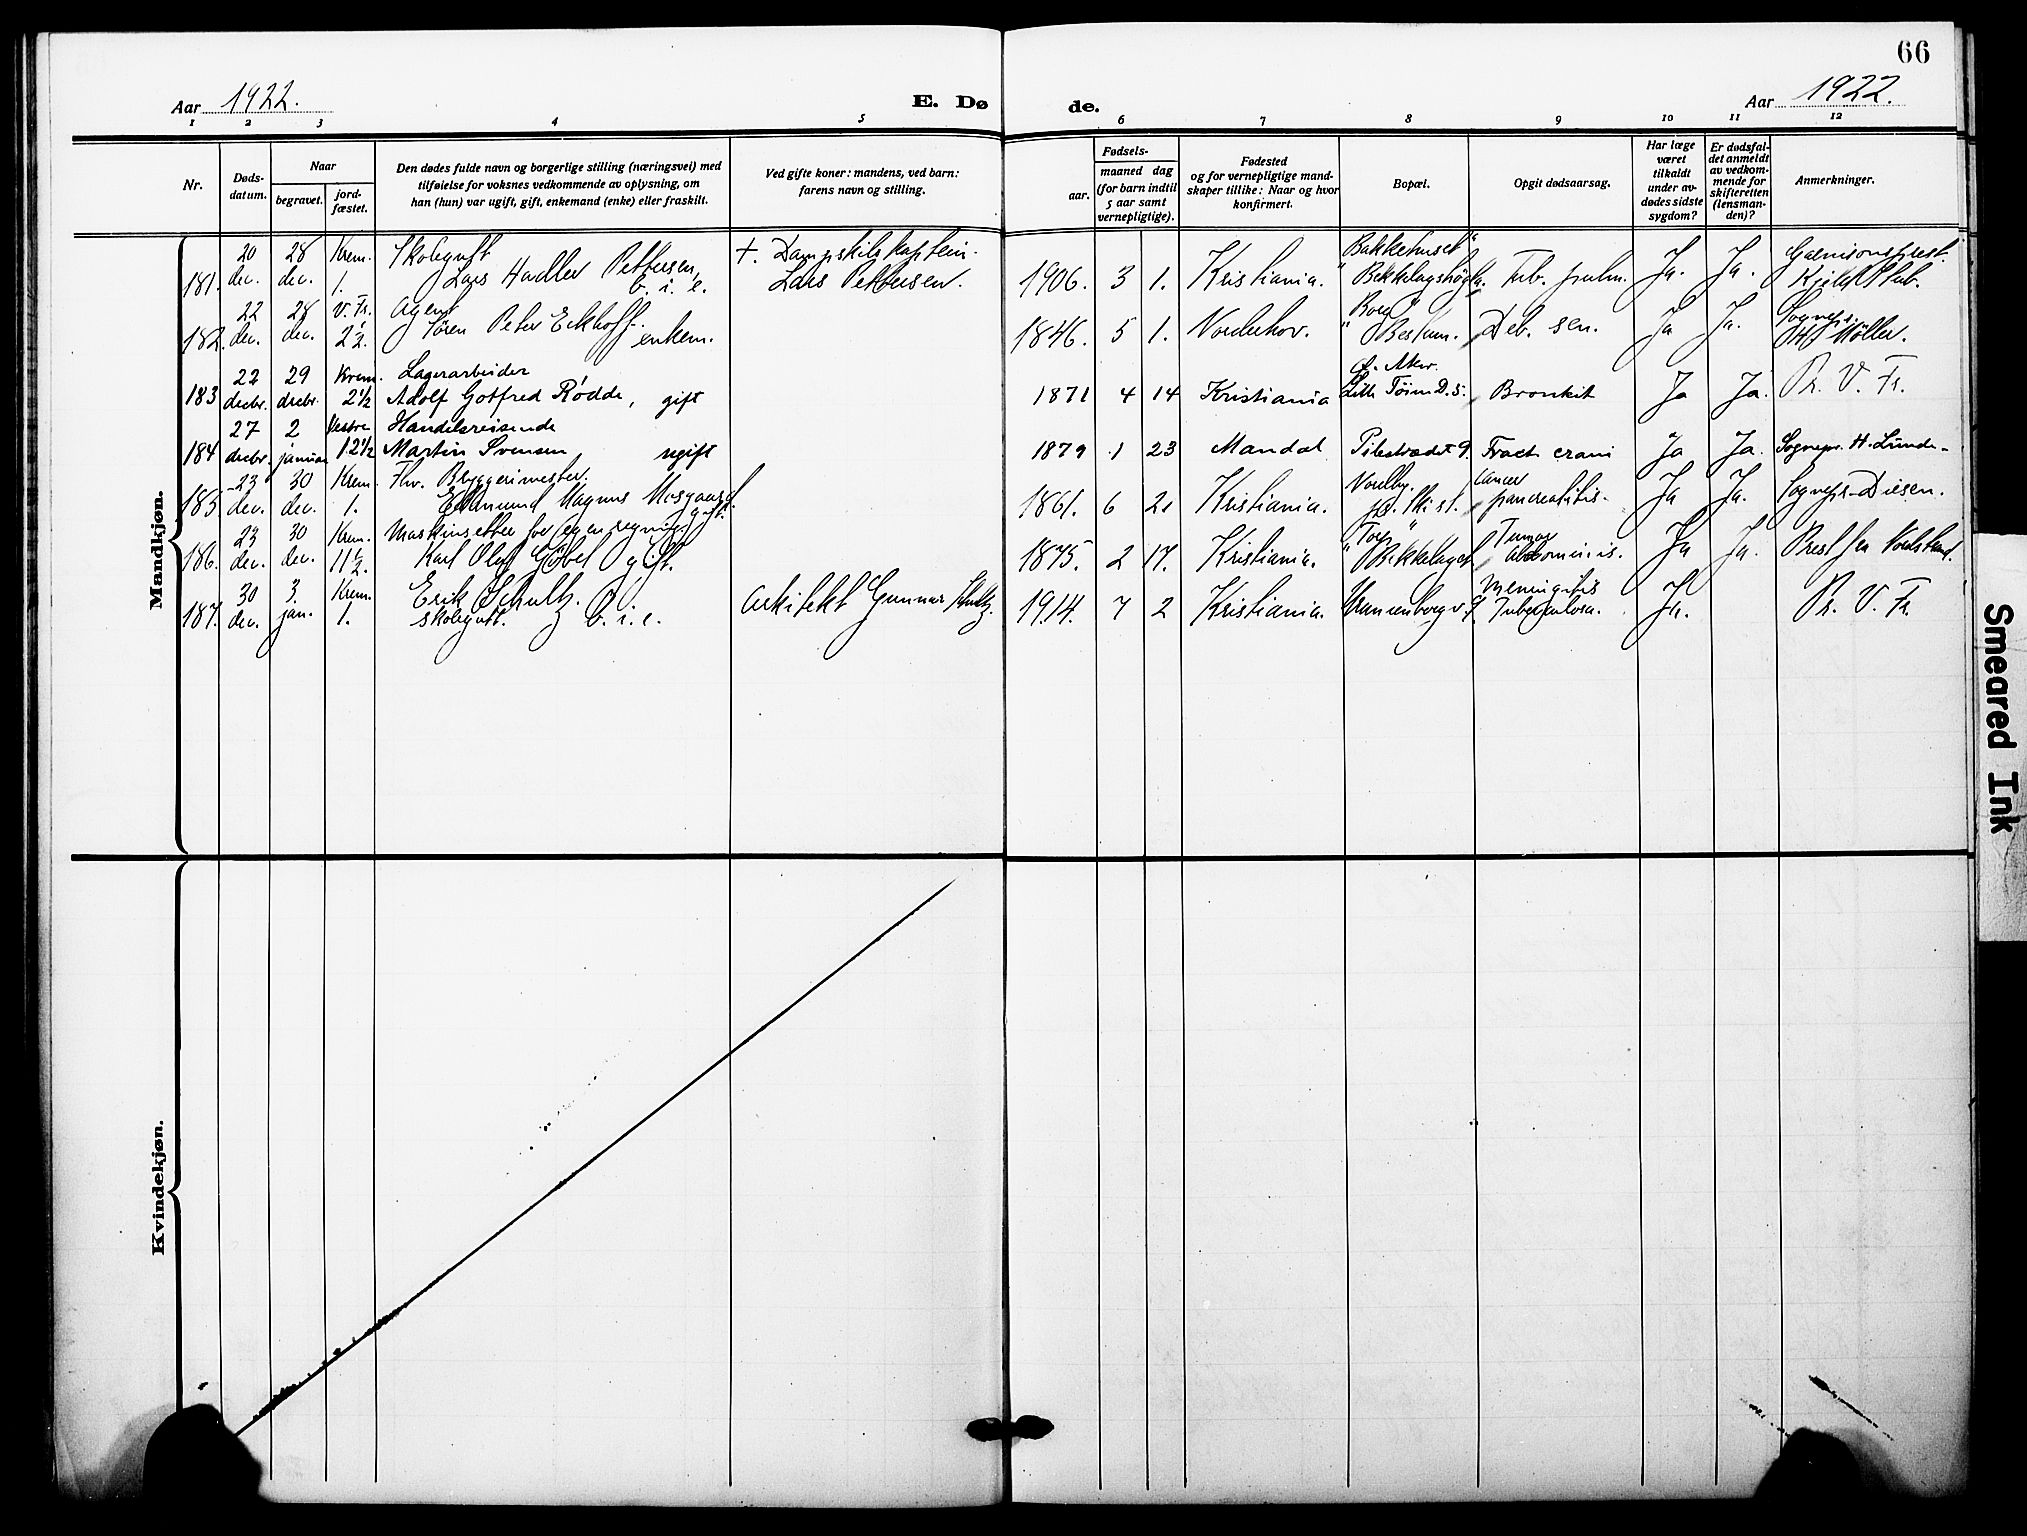 66
Aar 1922.
E. Dø de.
Aar 1922.
1 2 3 4 5 6 7 8 9 10 11 12
Nr.
Døds-
datum.
Naar
begravet.
jord-
fæstet.
Den dødes fulde navn og borgerlige stilling (næringsvei) med
tilføielse for voksnes vedkommende av oplysning, om
han (hun) var ugift, gift, enkemand (enke) eller fraskilt.
Ved gifte koner: mandens, ved barn:
farens navn og stilling.
Fødsels-
aar.
maaned dag
(for barn indtil
5 aar samt
vernepligtige).
Fødested
og for vernepligtige mand-
skaper tillike: Naar og hvor
konfirmert.
Bopæl.
Opgit dødsaarsag.
Har læge
været
tilkaldt
under av-
dødes sidste
sygdom?
Er dødsfal-
det anmeldt
av vedkom-
mende for
skifteretten
(lensman-
den)?
Anmerkninger.
Mandkjøn.
20 28 Krem. Skolegutt +. Dampskibskaptein "Bakkehuset" Garnisonsprest
181. dec. dec. 1. Lars Pettersen, b. i. e. Lars Pettersen. 1906. 3 1. Kristiania. Tub. pulm. Ja. Ja. Kjeld Stub.
22 28 V. Fr. Agent Sognepr.
182. dec. dec. 2½. Søren Peter Eckhoff. enkem. 1846. 5 1. Norderhov. Bestum. Deb. sen. Ja Ja. Møller.
22 29 Krem. Lagerarbeider Ø. Aker.
183 decbr. decbr. 2½ Adolf Gotfred Rødde, gift 1871 4 14 Kristiania Lille Tøien D. 5. Bronkit Ja Ja. Pr. V. Fr.
27 2 Vestre Handelsreisende
184 decbr. januar 12½ Martin Svensen ugift 1879 1 23 Mandal Pilestrædet 9. Fract. cranii Ja Ja. Sognepr. H. Lunde
23 30 Krem. Fhv. Bryggerimester. Nordby. Cancer
185. dec. dec. 1. Edmund Magnus gift. 1861. 6 21 Kristiania. pr. Ski st. Ja Ja. Sognepr. Diesen.
23 30 Krem. Maskinsetter for egen regning Tumor
186. dec. dec. 11½. Karl Olaf Göbel gift. 1875. 2 17. Kristiania. Bekkelaget abdominis. Ja Ja. Prest
30 3. Krem. Erik Schultz. Meningitis
187. dec. jan. 1. Skolegutt. b. i. e. Arkitekt Gunnar Schultz. 1914. 7 2 Kristiania. Uranienborgv. 9. Tuberculosa. Ja. Pr. V. Fr.
Kvindekjøn.
Smeared Ink